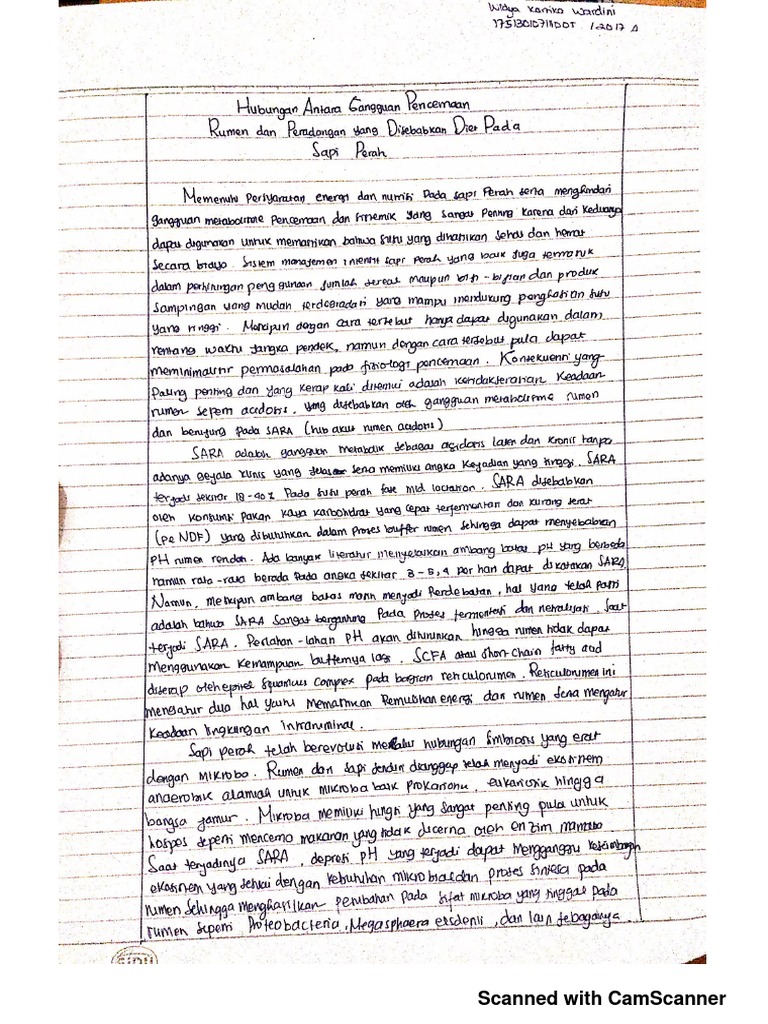 Widya Kartika Wardini
175130107111007 / 2017 A
Hubungan Antara Gangguan Pencernaan
Rumen dan Peradangan yang Disebabkan Diet Pada
Sapi Perah
Memenuhi Persyaratan energi dan nutrisi Pada sapi Perah serta menghindari
gangguan metabolisme Pencernaan dan sistemik yang sangat Penting karena dari Keduanya
dapat digunakan untuk memastikan bahwa susu yang dihasilkan sehat dan hemat
secara biaya. Sistem manajemen intensif sapi perah yang baik juga termasuk
dalam perhitungan penggunaan jumlah sereal maupun biji-bijian dan produk
sampingan yang mudah terdegradasi yang mampu mendukung penghasilan susu
yang tinggi. Meskipun dengan cara tersebut hanya dapat digunakan dalam
rentang waktu jangka pendek, namun dengan cara tersebut pula dapat
meminimalisir permasalahan pada fisiologi pencernaan. Konsekuensi yang
Paling penting dan yang kerap kali ditemui adalah ketidakseraian Keadaan
rumen seperti acidosis, yang disebabkan oleh gangguan metabolisme rumen
dan berujung pada SARA (sub akut rumen acidosis)
SARA adalah gangguan metabolik sebagai acidosis laten dan kronis tanpa
adanya gejala klinis yang jelas serta memiliki angka Kejadian yang tinggi. SARA
terjadi sekitar 18-40% Pada susu perah fase mid lactation. SARA disebabkan
oleh konsumsi pakan kaya karbohidrat yang cepat terfermentasi dan kurang serat
(pe NDF) yang dibutuhkan dalam proses buffer rumen sehingga dapat menyebabkan
PH rumen rendah. Ada banyak literatur menyebutkan ambang batas pH yang berbeda
namun rata-rata berada pada angka sekitar 3-5,4 per hari dapat dikatakan SARA
Namun, meskipun ambang batas masih menjadi Perdebatan, hal yang telah pasti
adalah bahwa SARA sangat bergantung Pada Proses fermentasi dan netralisasi. Saat
terjadi SARA. Perlahan-lahan PH akan diturunkan hingga rumen tidak dapat
menggunakan kemampuan buffernya lagi. SCFA atau short-chain fatty acid
diserap oleh epitel squamous complex pada bagian reticulorumen. Reticulorumen ini
mengatur dua hal yaitu memastikan Pemulihan energi dari rumen serta mengatur
Keadaan lingkungan intraruminal.
Sapi perah telah berevolusi melalui hubungan simbiosis yang erat
dengan mikroba. Rumen dari sapi sendiri dianggap telah menjadi ekosistem
anaerobik alamiah untuk mikroba baik prokariotik, eukariotik hingga
bangsa jamur. Mikroba memiliki fungsi yang sangat penting pula untuk
hospes seperti mencerna makanan yang tidak dicerna oleh enzim mamalia
Saat terjadinya SARA, depresi pH yang terjadi dapat mengganggu keseimbangan
ekosistem yang sesuai dengan kebutuhan mikrobia dan proses sintesa pada
rumen sehingga menghasilkan perubahan pada sifat mikroba yang tinggal pada
rumen seperti Proteobacteria, Megasphaera elsdenii, dan lain sebagainya
SIDU
Scanned with CamScanner